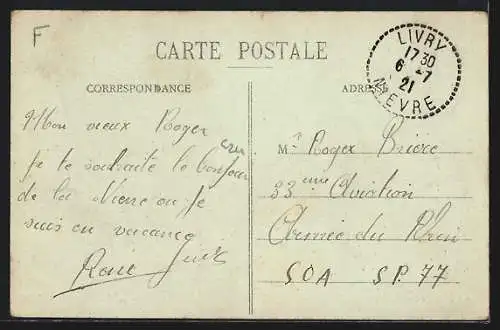 F
CARTE POSTALE
CORRESPONDANCE
ADRESSE
LIVRY
17 30
6 -7
21
NIEVRE
Mon vieux Roger
Je te souhaite le bonjour
de la Nievre ou je
suis en vacance
René
Mr Roger Brière
33 eme Aviation
Armée du Rhin
SOA SP. 77